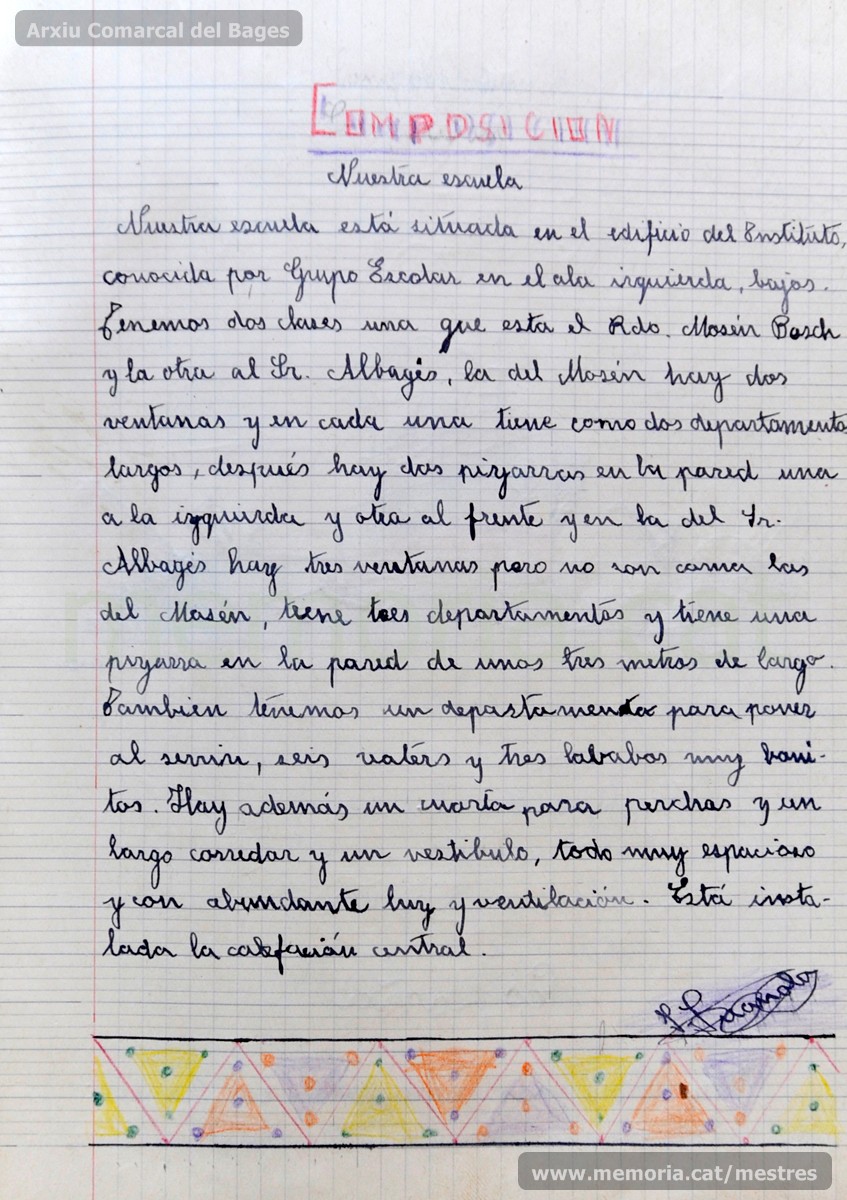 Arxiu Comarcal del Bages
COMPOSICION
Nuestra escuela
Nuestra escuela está situada en el edificio del Instituto,
conocida por Grupo Escolar en el ala izquierda, bajos.
Tenemos dos clases una que esta el Rdo. Mosén Bosch
y la otra al Sr. Albagés, la del Mosén hay dos
ventanas y en cada una tiene como dos departamentos
largos, después hay dos pizarras en la pared una
a la izquirda y otra al frente y en la del Sr.
Albagés hay tres ventanas pero no son como las
del Mosén, tiene tres departamentos y tiene una
pizarra en la pared de unos tres metros de largo.
Tambien tenemos un departamento para poner
al serrin, seis vaters y tres lababos muy boni-
tos. Hay además un cuarto para perchas y un
largo corredor y un vestibulo, todo muy espacioso
y con abundante luz y ventilación. Está insta-
lada la calefación central.
www.memoria.cat/mestres